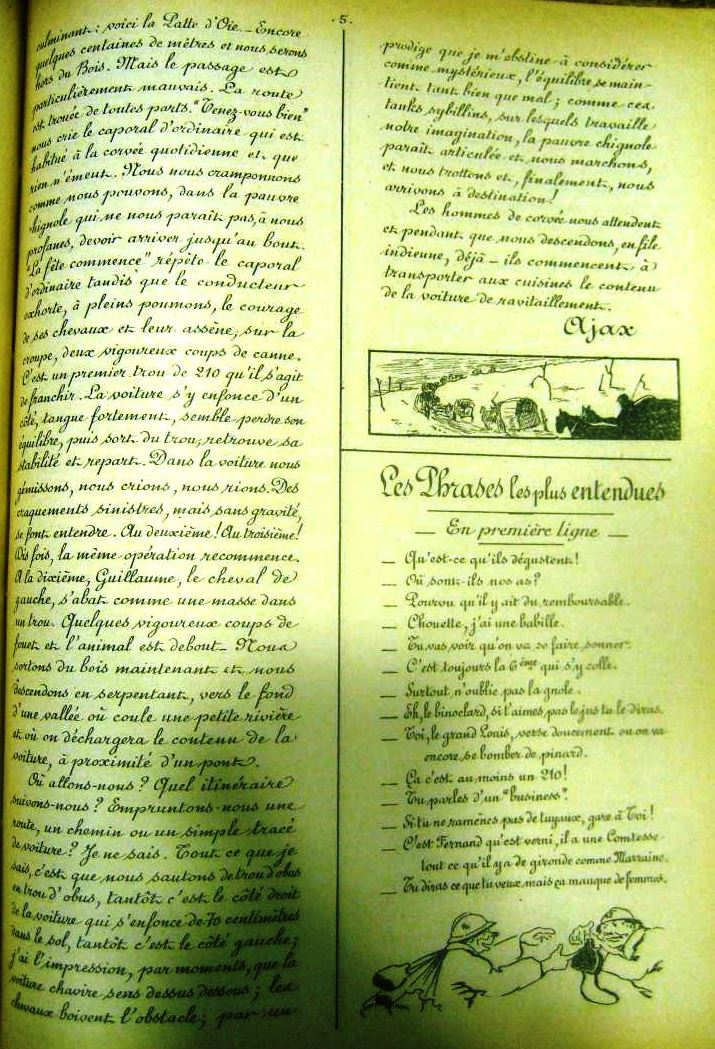 - 5 -
culminant : voici la Patte d'Oie _ Encore
quelques centaines de mètres et nous serons
hors du Bois. Mais le passage est
particulièrement mauvais. La route
est trouée de toutes parts. "Tenez-vous bien"
nous crie le caporal d'ordinaire qui est
habitué à la corvée quotidienne et que
rien n'émeut. Nous nous cramponnons
comme nous pouvons, dans la pauvre
chignole qui ne nous paraît pas, à nous
profanes, devoir arriver jusqu'au bout.
"La fête commence" répète le caporal
d'ordinaire tandis que le conducteur
exhorte, à pleins poumons, le courage
de ses chevaux et leur assène, sur la
croupe, deux vigoureux coups de canne.
C'est un premier trou de 210 qu'il s'agit
de franchir. La voiture s'y enfonce d'un
côté, tangue fortement, semble perdre son
équilibre, puis sort du trou, retrouve sa
stabilité et repart. Dans la voiture nous
gémissons, nous crions, nous rions. Des
craquements sinistres, mais sans gravité,
se font entendre. Au deuxième ! Au troisième !
Dix fois, la même opération recommence.
A la dixième, Guillaume, le cheval de
gauche, s'abat comme une masse dans
un trou. Quelques vigoureux coups de
fouet et l'animal est debout. Nous
sortons du bois maintenant et nous
descendons en serpentant, vers le fond
d'une vallée où coule une petite rivière
et où on déchargera le contenu de la
voiture, à proximité d'un pont.
Où allons-nous ? Quel itinéraire
suivons-nous ? Empruntons-nous une
route, un chemin ou un simple tracé
de voiture ? Je ne sais. Tout ce que je
sais, c'est que nous sautons de trou d'obus
en trou d'obus, tantôt c'est le côté droit
de la voiture qui s'enfonce de 70 centimètres
dans le sol, tantôt c'est le côté gauche ;
j'ai l'impression, par moments, que la
voiture chavire sens dessus dessous ; les
chevaux boivent l'obstacle ; par un
prodige que je m'obstine à considérer
comme mystérieux, l'équilibre se main-
tient tant bien que mal ; comme ces
tanks sybillins, sur lesquels travaille
notre imagination, la pauvre chignole
paraît articulée et nous marchons,
et nous trottons et, finalement, nous
arrivons à destination !
Les hommes de corvée nous attendent
et pendant que nous descendons, en file
indienne, déjà _ ils commencent à
transporter aux cuisines le contenu
de la voiture de ravitaillement.
Ajax
Les Phrases les plus entendues
_ En première ligne _
_ Qu'est-ce qu'ils dégustent !
_ Où sont-ils nos as ?
_ Pourvu qu'il y ait du remboursable.
_ Chouette, j'ai une babille.
_ Tu vas voir qu'on va se faire sonner.
_ C'est toujours la 6ème qui s'y colle.
_ Surtout n'oublie pas la gnole.
_ Eh, le binoclard, si t'aimes pas le jus tu le diras.
_ Toi, le grand Louis, verse doucement ou on va
encore se bomber de pinard.
_ Ça c'est au moins un 210 !
_ Tu parles d'un "business".
_ Si tu ne ramènes pas de tuyaux, gare à Toi !
_ C'est Fernand qu'est verni, il a une Comtesse
tout ce qu'il y a de gironde comme Marraine.
_ Tu diras ce que tu veux mais ça manque de femmes.